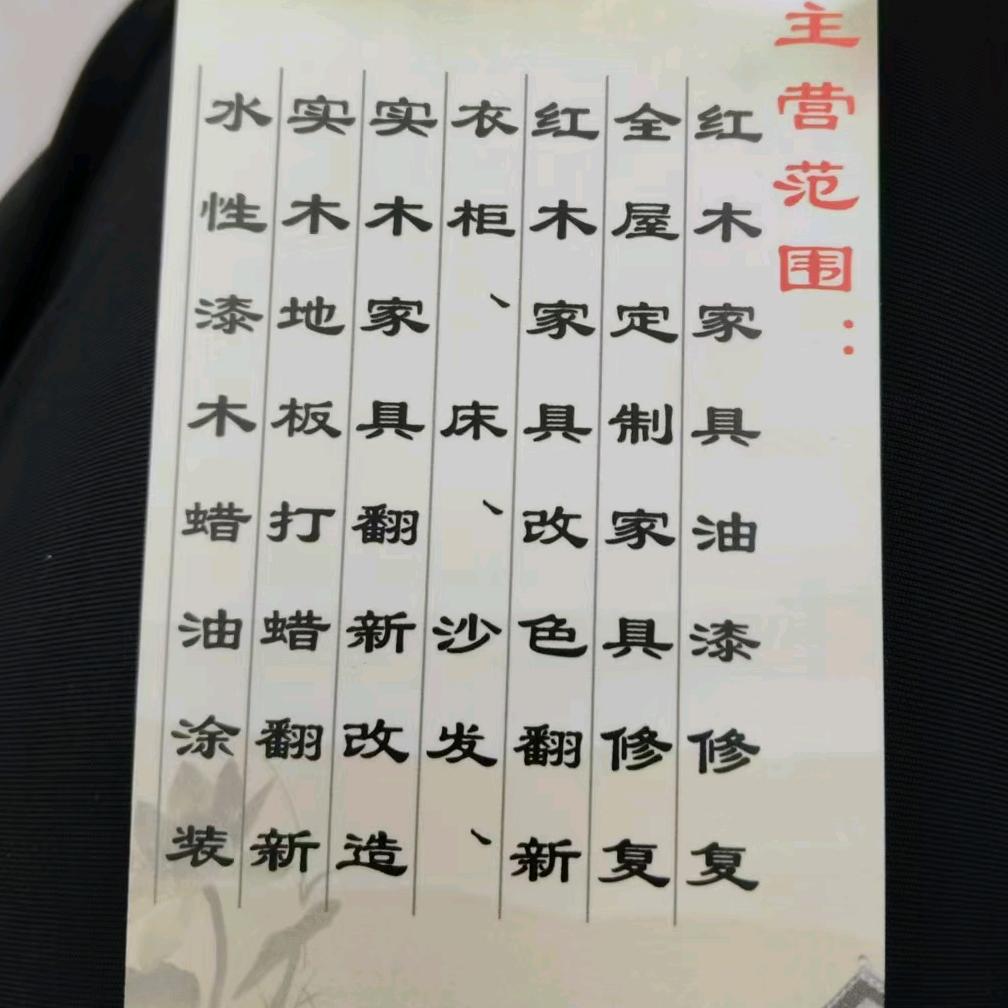 主营范围：
红木家具油漆修复
全屋定制家具修复
红木家具改色翻新
衣柜、床、沙发、
实木家具翻新改造
实木地板打蜡翻新
水性漆木蜡油涂装